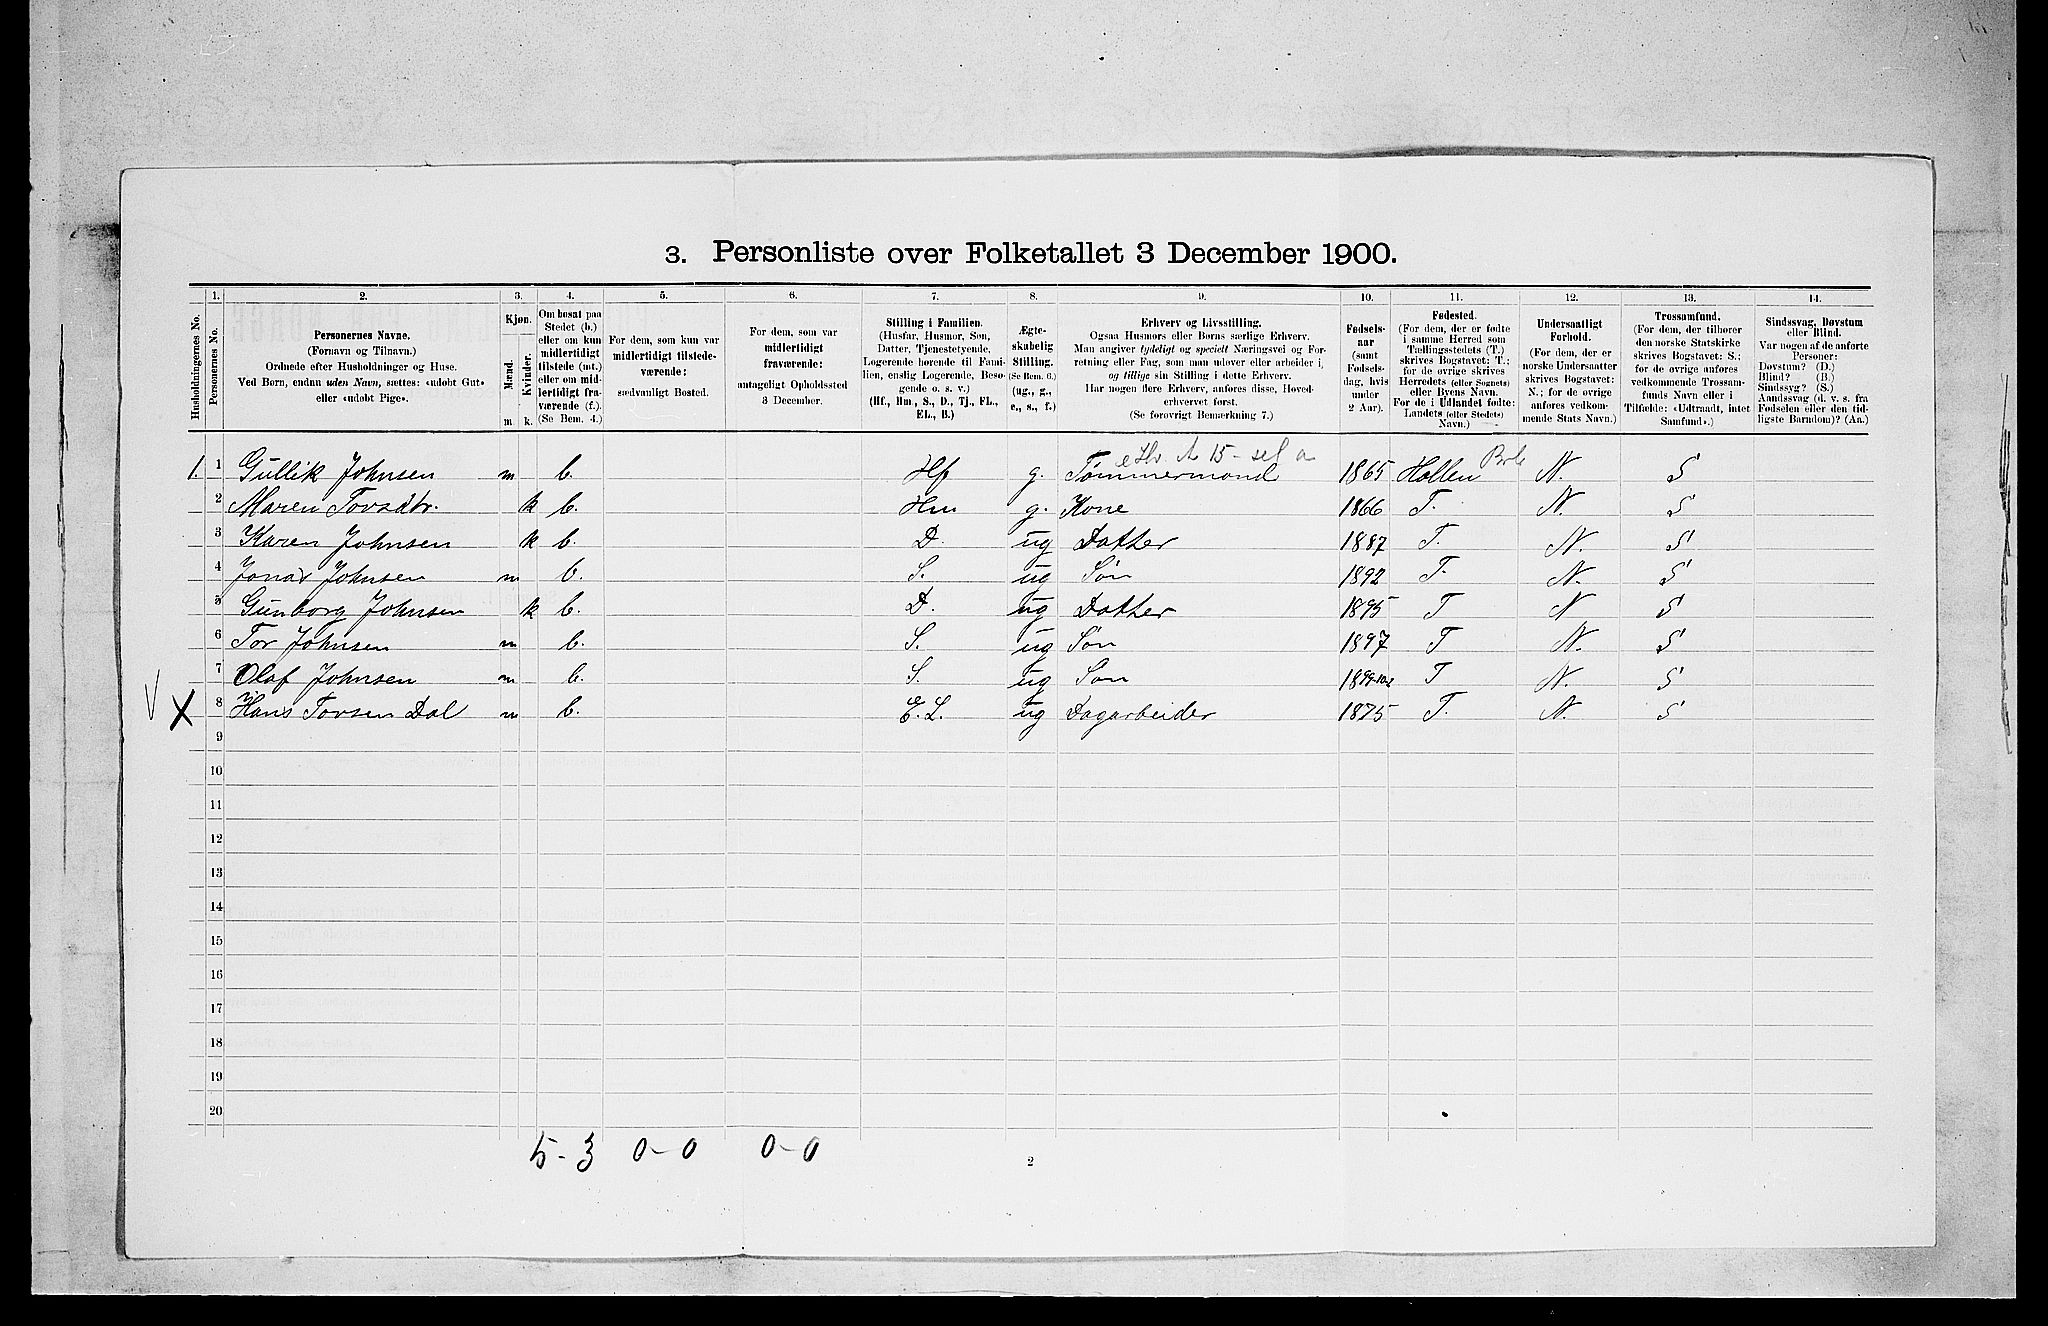 3. Personliste over Folketallet 3 December 1900.
1. 2. 3. 4. 5. 6. 7. 8. 9. 10. 11. 12. 13. 14.
Husholdningernes No.
Personernes No.
Personernes Navne.
(Fornavn og Tilnavn.)
Ordnede efter Husholdninger og Huse.
Ved Børn, endnu uden Navn, sættes: «udøbt Gut»
eller «udøbt Pige».
Kjøn.
Mænd.
Kvinder.
m. k.
Om bosat paa
Stedet (b.)
eller om kun
midlertidigt
tilstede (mt.)
eller om mid-
lertidigt fra-
værende (f.).
(Se Bem. 4.)
For dem, som kun var
midlertidigt tilstede-
værende:
sædvanligt Bosted.
For dem, som var
midlertidigt
fraværende:
antageligt Opholdssted
3 December.
Stilling i Familien.
(Husfar, Husmor, Søn,
Datter, Tjenestetyende,
Logerende hørende til Fami-
lien, enslig Logerende, Besø-
gende o. s. v.)
(Hf., Hm., S., D., Tj., FL.,
EL., B.)
Ægte-
skabelig
Stilling.
(Se Bem. 6.)
(ug., g.,
e., s., f.)
Erhverv og Livsstilling.
Ogsaa Husmors eller Børns særlige Erhverv.
Man angiver tydeligt og specielt Næringsvei og For-
retning eller Fag, som man udøver eller arbeider i,
og tillige sin Stilling i dette Erhverv.
Har nogen flere Erhverv, anføres disse, Hoved-
erhvervet først.
(Se forøvrigt Bemærkning 7.)
Fødsels-
aar
(samt
Fødsels-
dag, hvis
under
2 Aar).
Fødested.
(For dem, der er fødte
i samme Herred som
Tællingsstedets (T.)
skrives Bogstavet: T.;
for de øvrige skrives
Herredets (eller Sognets)
eller Byens Navn.
For de i Udlandet fødte:
Landets (eller Stedets)
Navn.)
Undersaatligt
Forhold.
(For dem, der er
norske Undersaatter
skrives Bogstavet:
N.; for de øvrige
anføres vedkom-
mende Stats Navn.)
Trossamfund.
(For dem, der tilhører
den norske Statskirke
skrives Bogstavet: S.;
for de øvrige anføres
vedkommende Trossam-
funds Navn eller i
Tilfælde: «Udtraadt, intet
Samfund».)
Sindssvag, Døvstum
eller Blind.
Var nogen af de anførte
Personer:
Døvstum? (D.)
Blind? (B.)
Sindssyg? (S.)
Aandssvag (d. v. s. fra
Fødselen eller den tid-
ligste Barndom)? (Aa.)
1. 1 Gullik Johnsen m b. Hf g. Tømmermond 1865 Hollen N. S
2 Maren Torsdtr. k b. Hm g. Kone 1866 T. N. S
3 Karen Johnsen k b. D. ug Datter 1887 T. N. S
4 Jonas Johnsen m b. S. ug Søn 1892 T. N. S
5 Gunborg Johnsen k b. D. ug Datter 1895 T N S
6 Tor Johnsen m b. S. ug Søn 1897 T N. S
7 Olaf Johnsen m b. S. ug Søn T N. S
V X 8 Hans Torsen Dal m b. E.L. ug Dagarbeider 1875 T. N. S
9
10
11
12
13
14
15
16
17
18
19
20
5-3 0-0 0-0
2